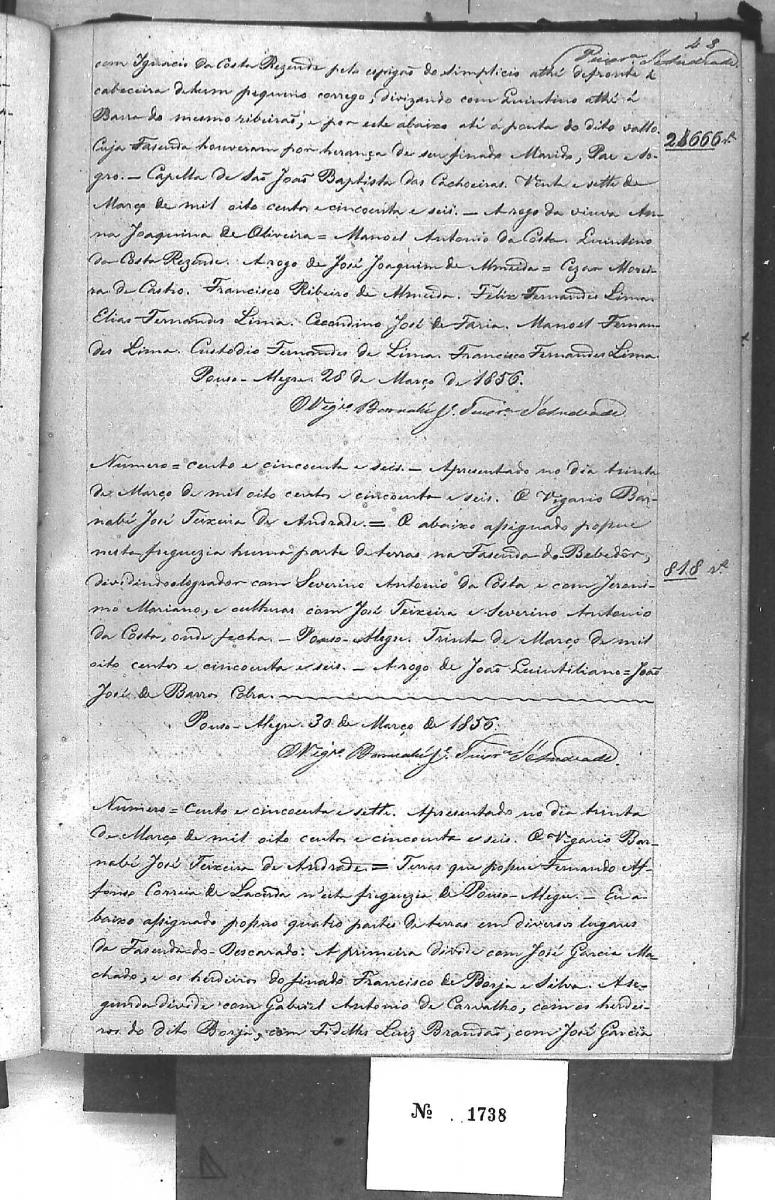 48
Teixr.ª d'Andrade
com Ignacio da Costa Rezende pelo espigão do Simplicio athé defronte á
cabeceira de hum pequeno corrego, divizando com Quintino athé á
Barra do mesmo ribeirão, e por este abaixo até á ponta do dito vallo
Cuja Fasenda houveram por herança de seu finado Marido, Pae e So-
gro. — Capella de São João Baptista das Cachoeiras. Vinte e sette de
Março de mil oito centos e cincoenta e seis. — A rogo da viuva An-
na Joaquina de Oliveira = Manoel Antonio da Costa. Quintino
da Costa Rezende. A rogo de José Joaquim de Almeida = Cezar Morei-
ra de Castro. Francisco Ribeiro de Almeida. Felix Fernandes Lima.
Elias Fernandes Lima. Cecondino José de Faria. Manoel Fernan-
des Lima. Custodio Fernandes de Lima. Francisco Fernandes Lima.
Pouso-Alegre 28 de Março de 1856.
O Vigr.º Barnabé J.e Teixr.ª d'Andrade
666 r.s
Numero = cento e cincoenta e seis. — Apresentado no dia trinta
de Março de mil oito centos e cincoenta e seis. O Vigario Bar-
nabé José Teixeira de Andrade. = O abaixo assignado possue
nesta freguezia huma parte de terras na Fasenda do Bebedôr,
dividindo o logrador com Severino Antonio da Costa e com Jeroni-
mo Mariano, e culturas com José Teixeira e Severino Antonio
da Costa, onde fecha. — Pouso-Alegre. Trinta de Março de mil
oito centos e cincoenta e seis. — A rogo de João Quintiliano = João
José de Barros Cobra.
818 r.s
Pouso-Alegre 30 de Março de 1856.
O Vigr.º Barnabé J.e Teixr.ª d'Andrade.
Numero = Cento e cincoenta e sette. Apresentado no dia trinta
de Março de mil oito centos e cincoenta e seis. O Vigario Bar-
nabé José Teixeira de Andrade. = Terras que possue Fernando Af-
fonso Correia de Lacerda n'esta freguezia de Pouso-Alegre. — Eu a-
baixo assignado possuo quatro partes de terras em diversos lugares
da Fasenda do Descarado: A primeira divide com José Garcia Ma-
chado, e os herdeiros do finado Francisco de Borja e Silva. A se-
gunda divide com Gabriel Antonio de Carvalho, com os herdei-
ros do dito Borja, com Fidellis Luiz Brandão, com José Garcia
Nº 1738